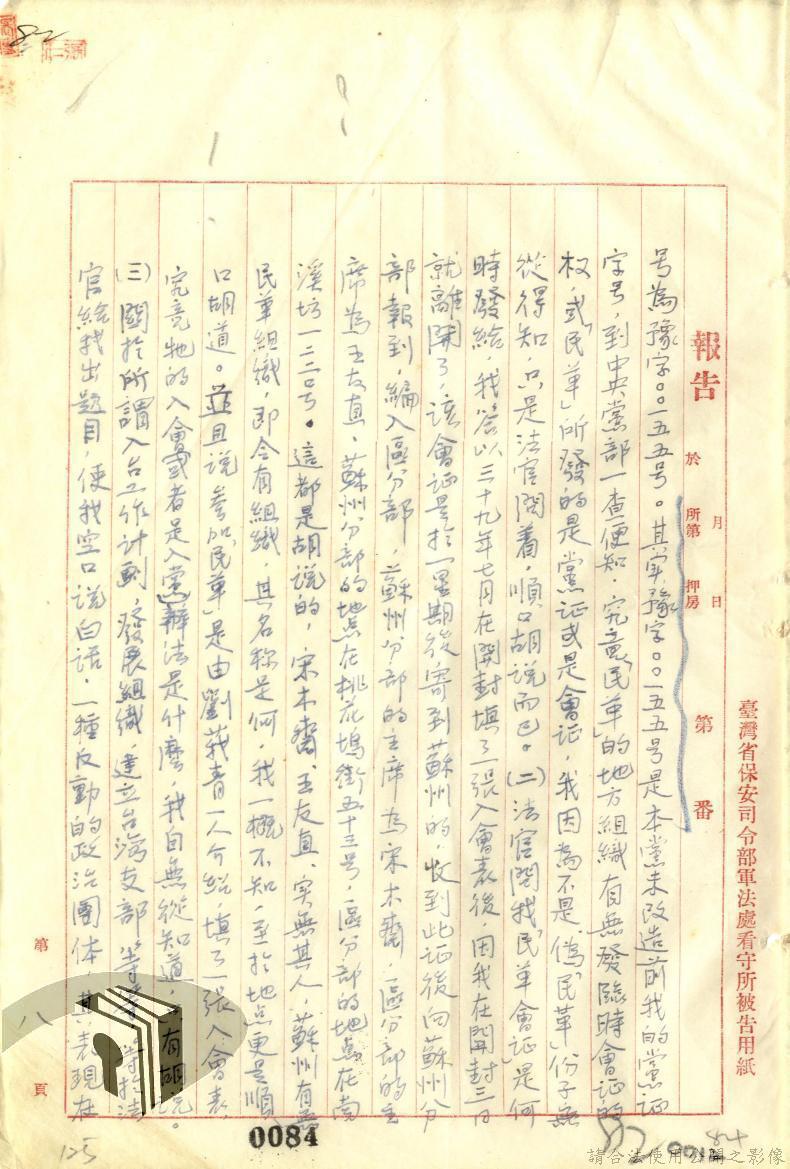 臺灣省保安司令部軍法處看守所被告用紙
報告
於
月 日
所第 押房
第 番
号為豫字00一五五号。其实豫字00一五五号是本黨未改造前我的黨证
字号,到中央黨部一查便知,究竟「民革」的地方組織有無發臨時會证的
权,或「民革」所發的是黨证或是會证,我因為不是「偽民革」份子無
從得知,只是法官問着,順口胡说而已。(二)法官問我「民革會证」是何
時發給,我答以三十九年七月在開封填了一張入會表後,因我在開封三日
就離開了,該會证是於一星期後寄到蘇州的,收到此证後向蘇州分
部報到,編入區分部,蘇州分部的主席為宋木齋,區分部的主
席為王友直,蘇州分部的地点在桃花塢街五十三号,區分部的地点在南
溪坊一二二0号。這都是胡说的,宋木齋、王友直、实無其人,蘇州有無
民革組織,即令有組織,其名称是何,我一概不知,至於地点更是順
口胡道。並且说參加「民革」是由劉莪青一人介紹,填了一張入會表,
究竟牠的入會或者是入黨辦法是什麼,我自無從知道,只有胡说。
(三)關於所謂入台工作計劃,發展組織,建立台湾支部等等,等於法
官給我出題目,使我空口说白话,一種反動的政治團体,其表現在
第 八 頁
82
0084
125
84
請合法使用公開之影像